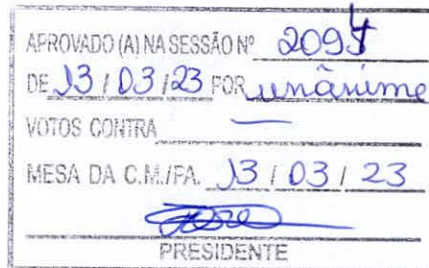 APROVADO (A) NA SESSÃO Nº 2094
DE 13 / 03 / 23 POR unânime
VOTOS CONTRA —
MESA DA C.M./FA. 13 / 03 / 23
PRESIDENTE